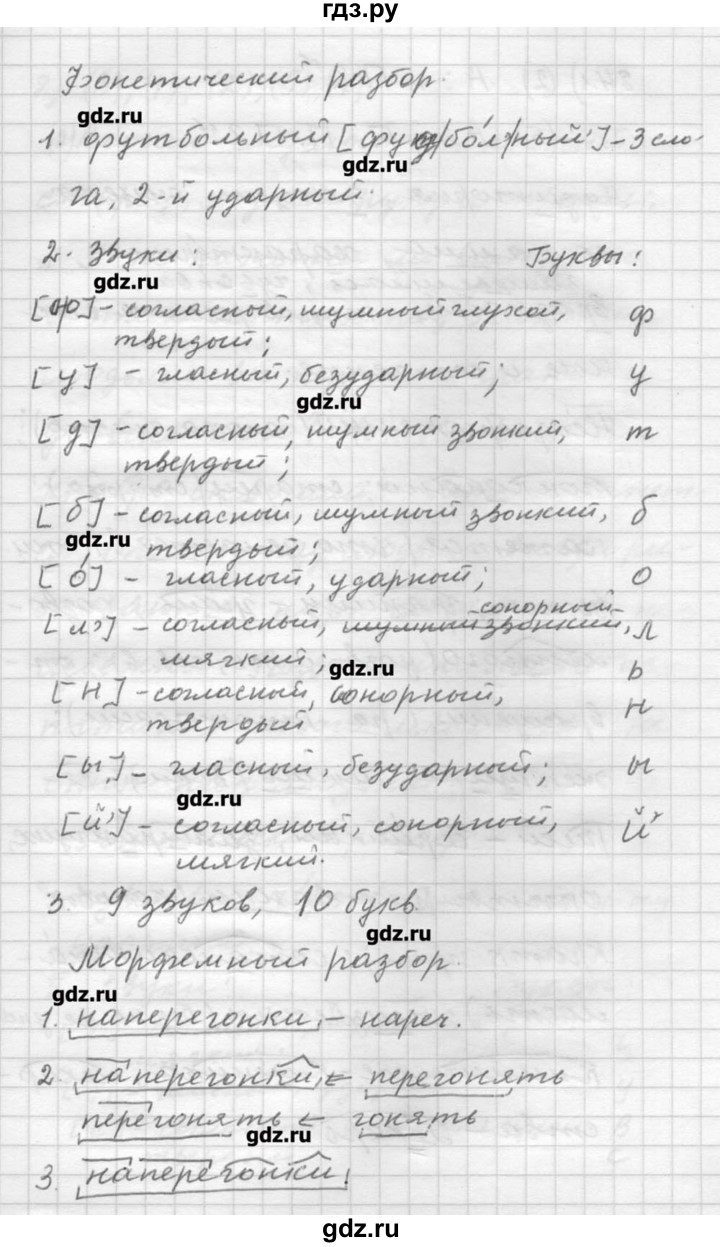 гдз.ру
Фонетический разбор.
gdz.ru
1. футбольный [фу д/бо́л'/ный'] - 3 сло-
gdz.ru
га, 2-й ударный.
2. Звуки: Буквы:
gdz.ru
[ф] - согласный, шумный глухой, ф
твердый;
[у] - гласный, безударный; у
gdz.ru
[д] - согласный, шумный звонкий, т
твердый;
[б] - согласный, шумный звонкий, б
gdz.ru
твердый;
[о́] - гласный, ударный; о
сонорный
[л'] - согласный, шумный звонкий, л
мягкий; ь
gdz.ru
[н] - согласный, сонорный, н
твердый
[ы] - гласный, безударный; ы
gdz.ru
[й'] - согласный, сонорный, й
мягкий.
3. 9 звуков, 10 букв.
gdz.ru
Морфемный разбор.
gdz.ru
1. наперегонки - нареч.
2. наперегонки ← перегонять
перегонять ← гонять
gdz.ru
3. наперегонки!
gdz.ru